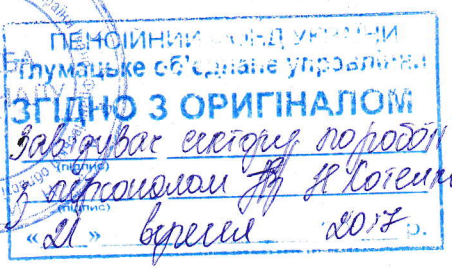 ПЕНСІЙНИЙ ФОНД УКРАЇНИ
Тлумацьке об'єднане управління
ЗГІДНО З ОРИГІНАЛОМ
Завідувач сектору по роботі
(підпис)
з персоналом Н
(підпис)
« 21 » вересня 2017 р.